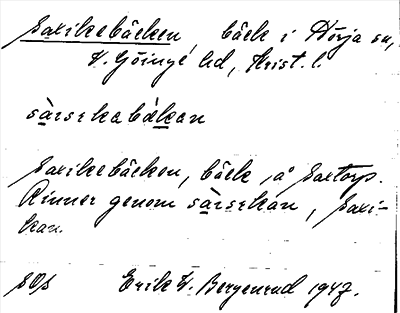 Saxikebäcken bäck i Hörja sn,
V. Göinge hd, Krist. l.
sàrsekabäkan
Saxikebäcken, bäck, å Saxtorp.
Rinner genom sàrsekan, Saxi-
kan.
SOS Erik V. Bergenrud 1947.